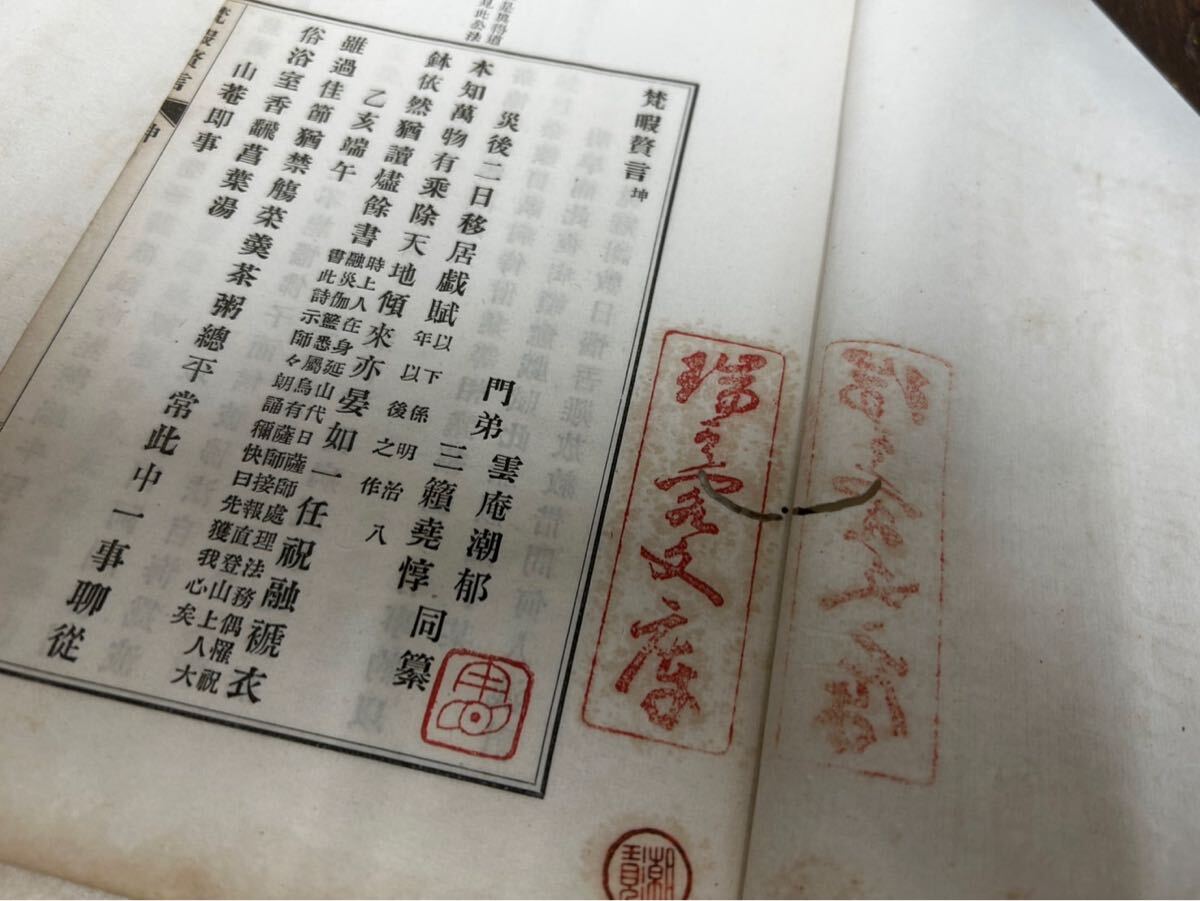 梵暇贅言 坤
門弟 雲庵潮郁
三籟堯惇 同纂
災後二日移居戯賦 以下係明治八
年以後之作
本知萬物有乘除天地傾來亦晏如一任祝融褫衣
鉢依然猶讀燼餘書 時上人在身延山代日薩師處理法務偶罹祝
融災伽籃悉屬烏有薩師接報直登山上人大
書此詩示師々朗誦稱快曰先獲我心矣
乙亥端午
雖過佳節猶禁觴菜羹茶粥總平常此中一事聊從
俗浴室香飜菖葉湯
山菴即事
梵暇贅言 坤